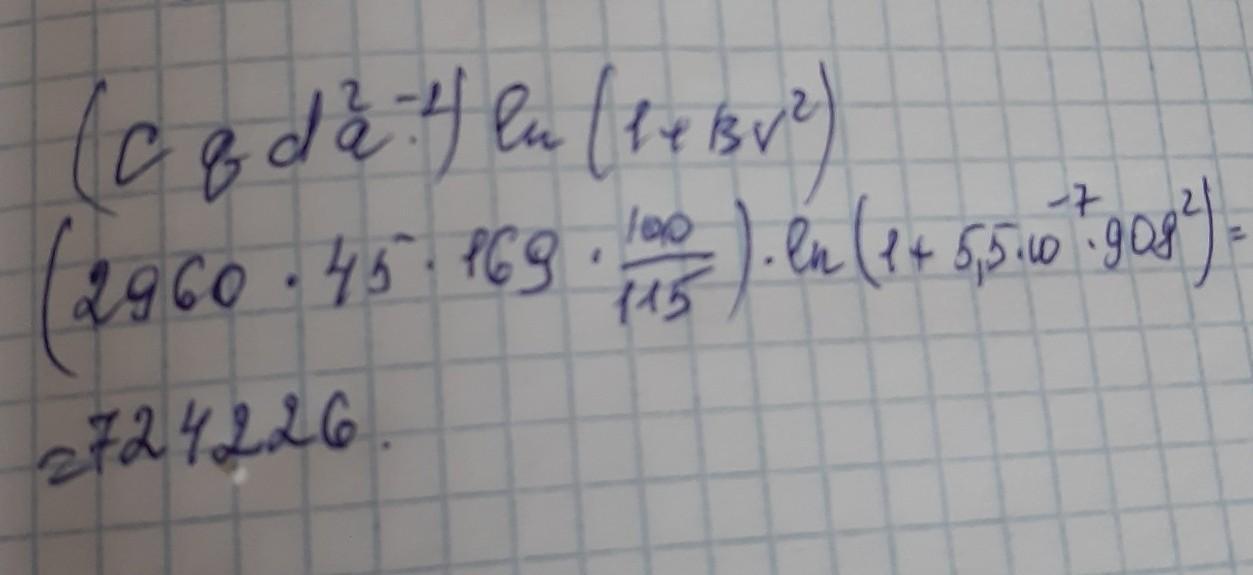 (c q d a² · ⁻¹) ln (1 + Bv²)
(2960 · 45 · 169 · 100/115) · ln (1 + 5,5·10⁻⁷ · 908²) =
=724226.